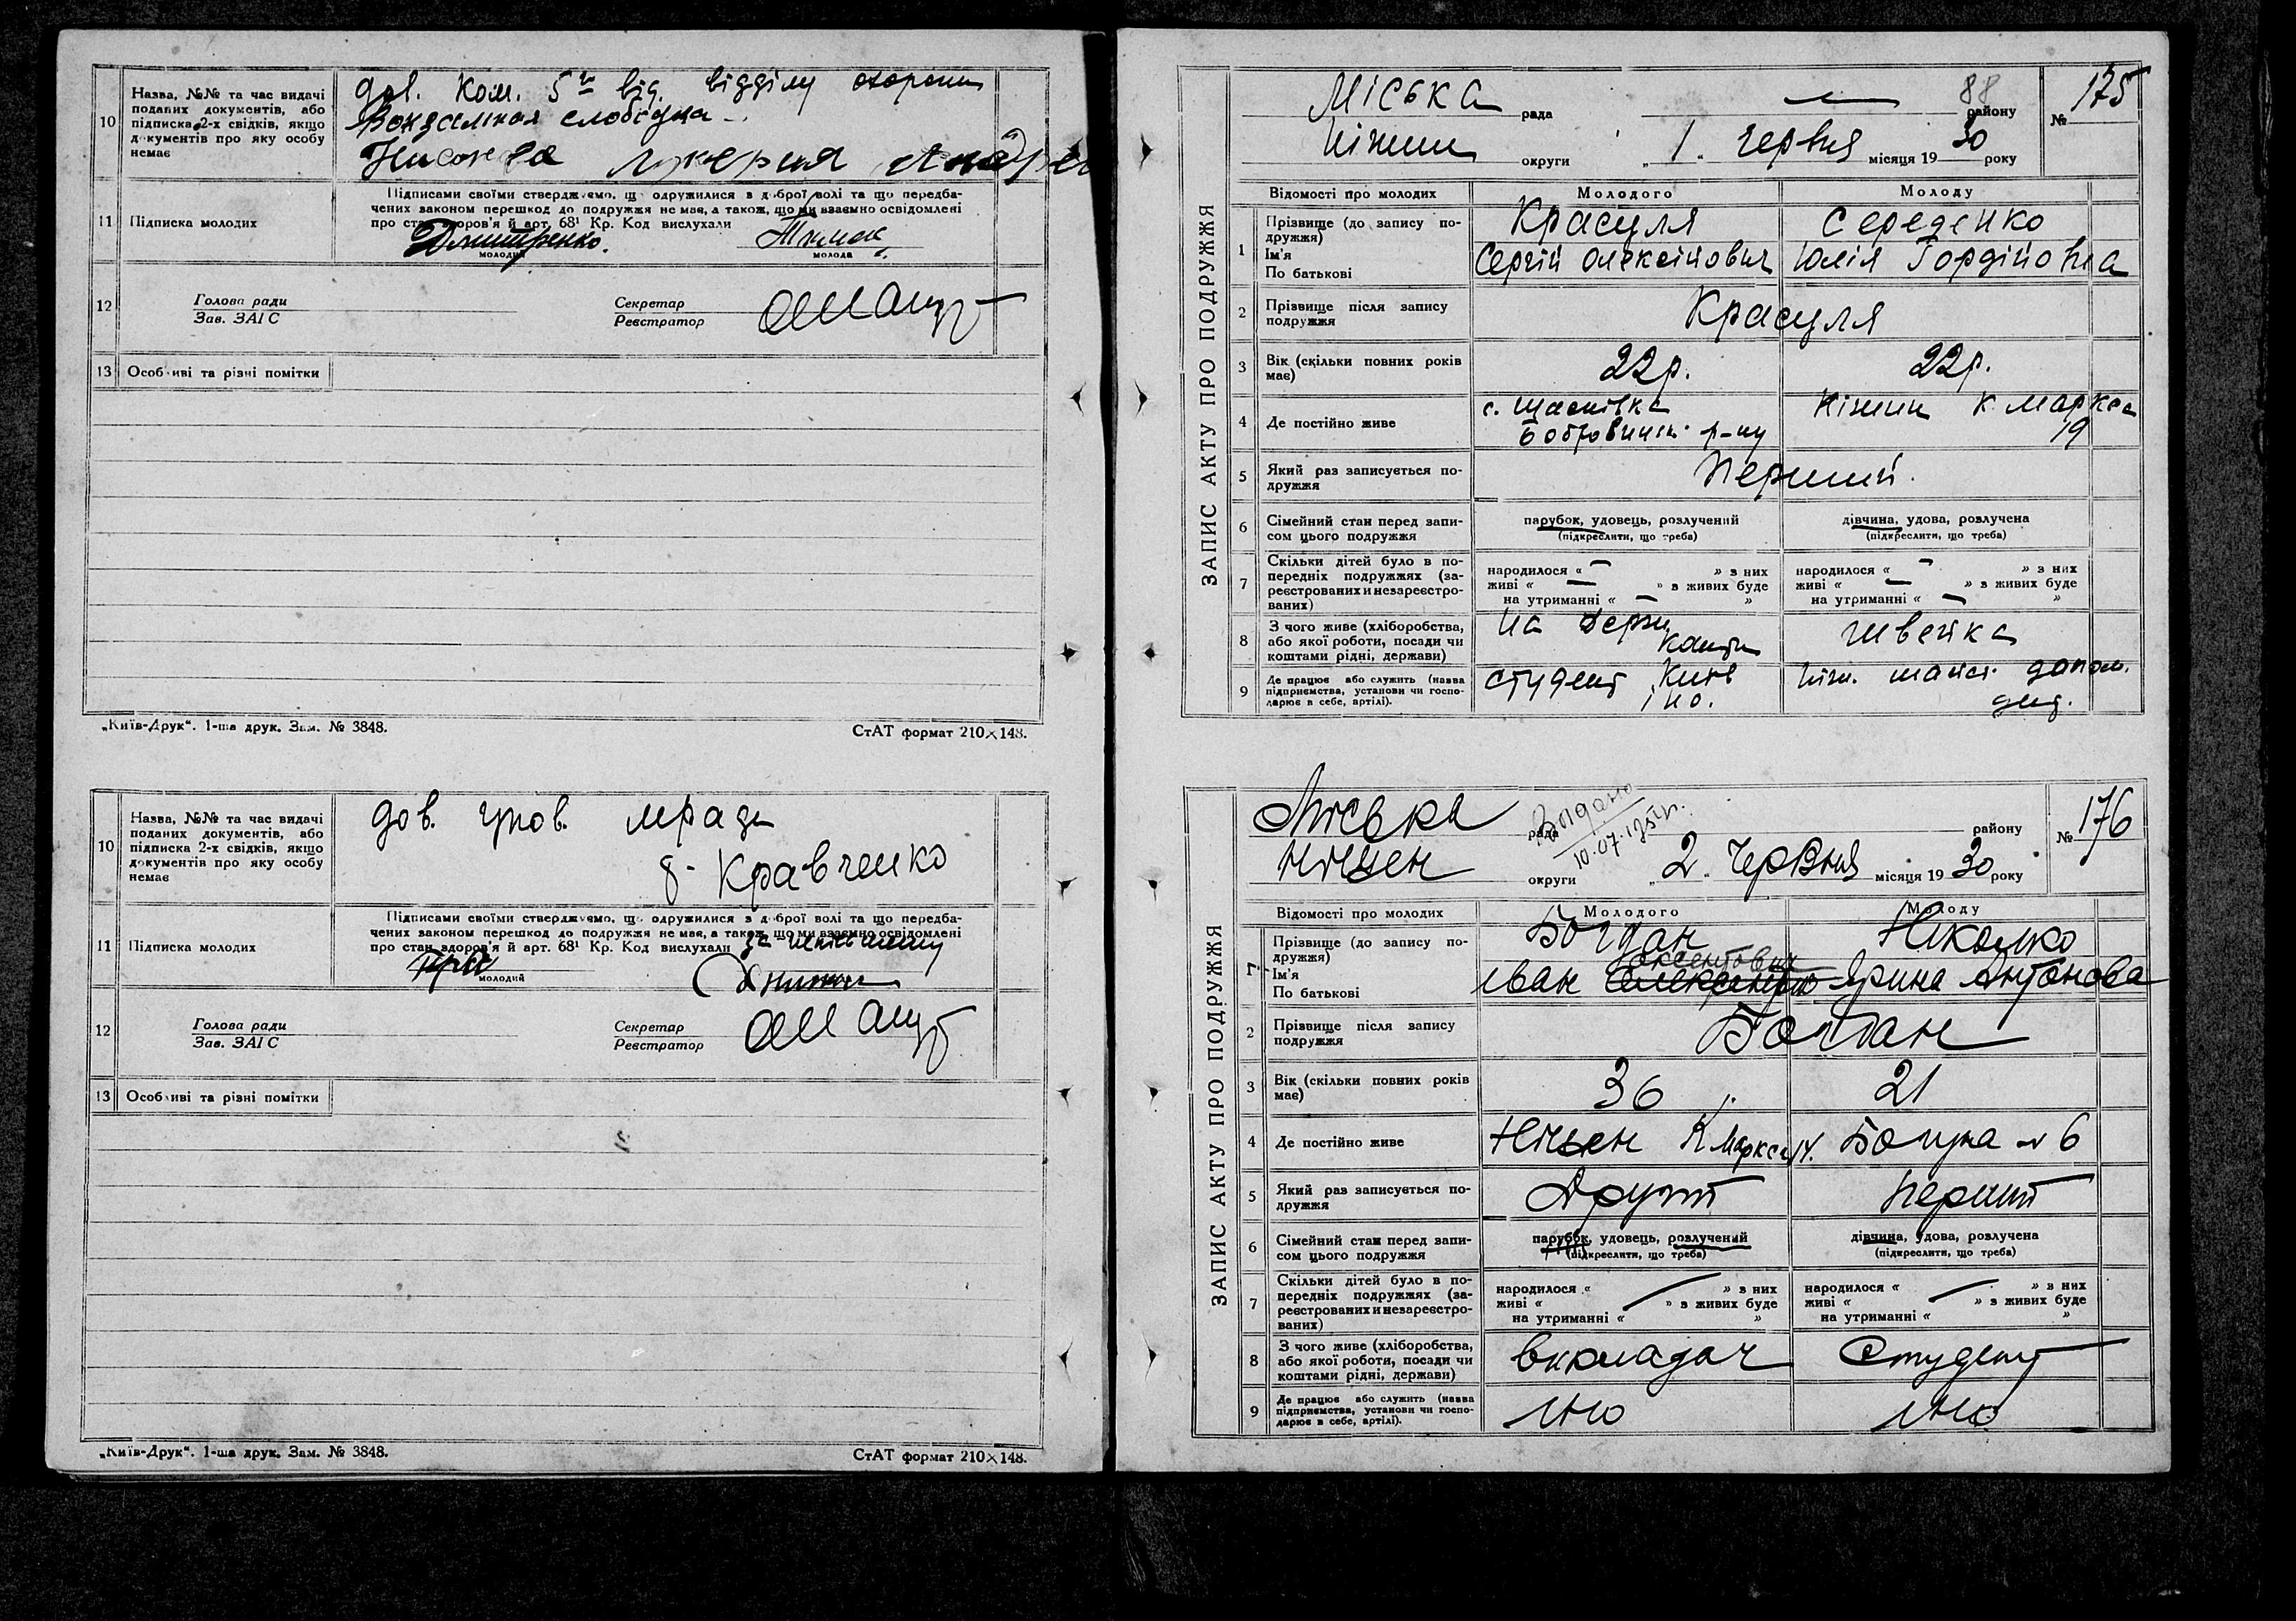 10 Назва, №№ та час видачі
поданих документів, або
підписка 2-х свідків, якщо
документів про яку особу
немає
дов. Ком. 5го від. відділу охорони
Вокзальная слобідка
Андрее
11 Підписка молодих
Підписами своїми стверджуємо, що одружилися з доброї волі та що передба-
чених законом перешкод до подружжя не має, а також, що ми взаємно освідомлені
про стан здоров'я й арт. 68¹ Кр. Код вислухали
Дмитренко
молодий
молода
12 Голова ради
Зав. ЗАГС
Секретар
Реєстратор
13 Особливі та різні помітки
„Київ-Друк“. 1-ша друк. Зам. № 3848.
СтАТ формат 210×148.
10 Назва, №№ та час видачі
поданих документів, або
підписка 2-х свідків, якщо
документів про яку особу
немає
дов. упов. мради
Кравченко
11 Підписка молодих
Підписами своїми стверджуємо, що одружилися з доброї волі та що передба-
чених законом перешкод до подружжя не має, а також, що ми взаємно освідомлені
про стан здоров'я й арт. 68¹ Кр. Код вислухали
молодий
12 Голова ради
Зав. ЗАГС
Секретар
Реєстратор
13 Особливі та різні помітки
„Київ-Друк“. 1-ша друк. Зам. № 3848.
СтАТ формат 210×148.
ЗАПИС АКТУ ПРО ПОДРУЖЖЯ
88
Міська рада — району № 175
Ніжин округи „1“ Червня місяця 1930 року
Відомості про молодих Молодого Молоду
1 Прізвище (до запису по-
дружжя)
Ім'я
По батькові
Красуля Середенко
Сергій Олексійович Юлія Гордійовна
2 Прізвище після запису
подружжя
Красуля
3 Вік (скільки повних років
має)
22р. 22р.
4 Де постійно живе
с. Щаснівка Ніжин К. Маркса
Бобровицьк. р-ну 19
5 Який раз записується по-
дружжя
Перший
6 Сімейний стан перед запи-
сом цього подружжя
парубок, удовець, розлучений дівчина, удова, розлучена
(підкреслити, що треба) (підкреслити, що треба)
7 Скільки дітей було в по-
передніх подружжях (за-
реєстрованих и незареєстро-
ваних)
народилося « — » з них народилося « — » з них
живі « — » з живих буде живі « — » з живих буде
на утриманні « — » на утриманні « — »
8 З чого живе (хліборобства,
або якої роботи, посади чи
коштами рідні, держави)
на Держ. швейка
кошти
9 Де працює або служить (назва
підприємства, установи чи госпо-
дарює в себе, артілі).
студент Київ Ніж. майст. допом.
ІНО.
ЗАПИС АКТУ ПРО ПОДРУЖЖЯ
Міська рада району № 176
Выдано
10.07.195
Ніжен округи „2“ Червня місяця 1930 року
Відомості про молодих Молодого Молоду
1 Прізвище (до запису по-
дружжя)
Ім'я
По батькові
Богдан
Оксентович
Іван Ярина Антонова
2 Прізвище після запису
подружжя
Богдан
3 Вік (скільки повних років
має)
36 21
4 Де постійно живе
Ніжен К Маркса 14. Богуна № 6
5 Який раз записується по-
дружжя
Другий Перший
6 Сімейний стан перед запи-
сом цього подружжя
парубок, удовець, розлучений дівчина, удова, розлучена
(підкреслити, що треба) (підкреслити, що треба)
7 Скільки дітей було в по-
передніх подружжях (за-
реєстрованих и незареєстро-
ваних)
народилося « » з них народилося « » з них
живі « » з живих буде живі « » з живих буде
на утриманні « » на утриманні « »
8 З чого живе (хліборобства,
або якої роботи, посади чи
коштами рідні, держави)
викладач Студент
9 Де працює або служить (назва
підприємства, установи чи госпо-
дарює в себе, артілі).
ІНО ІНО